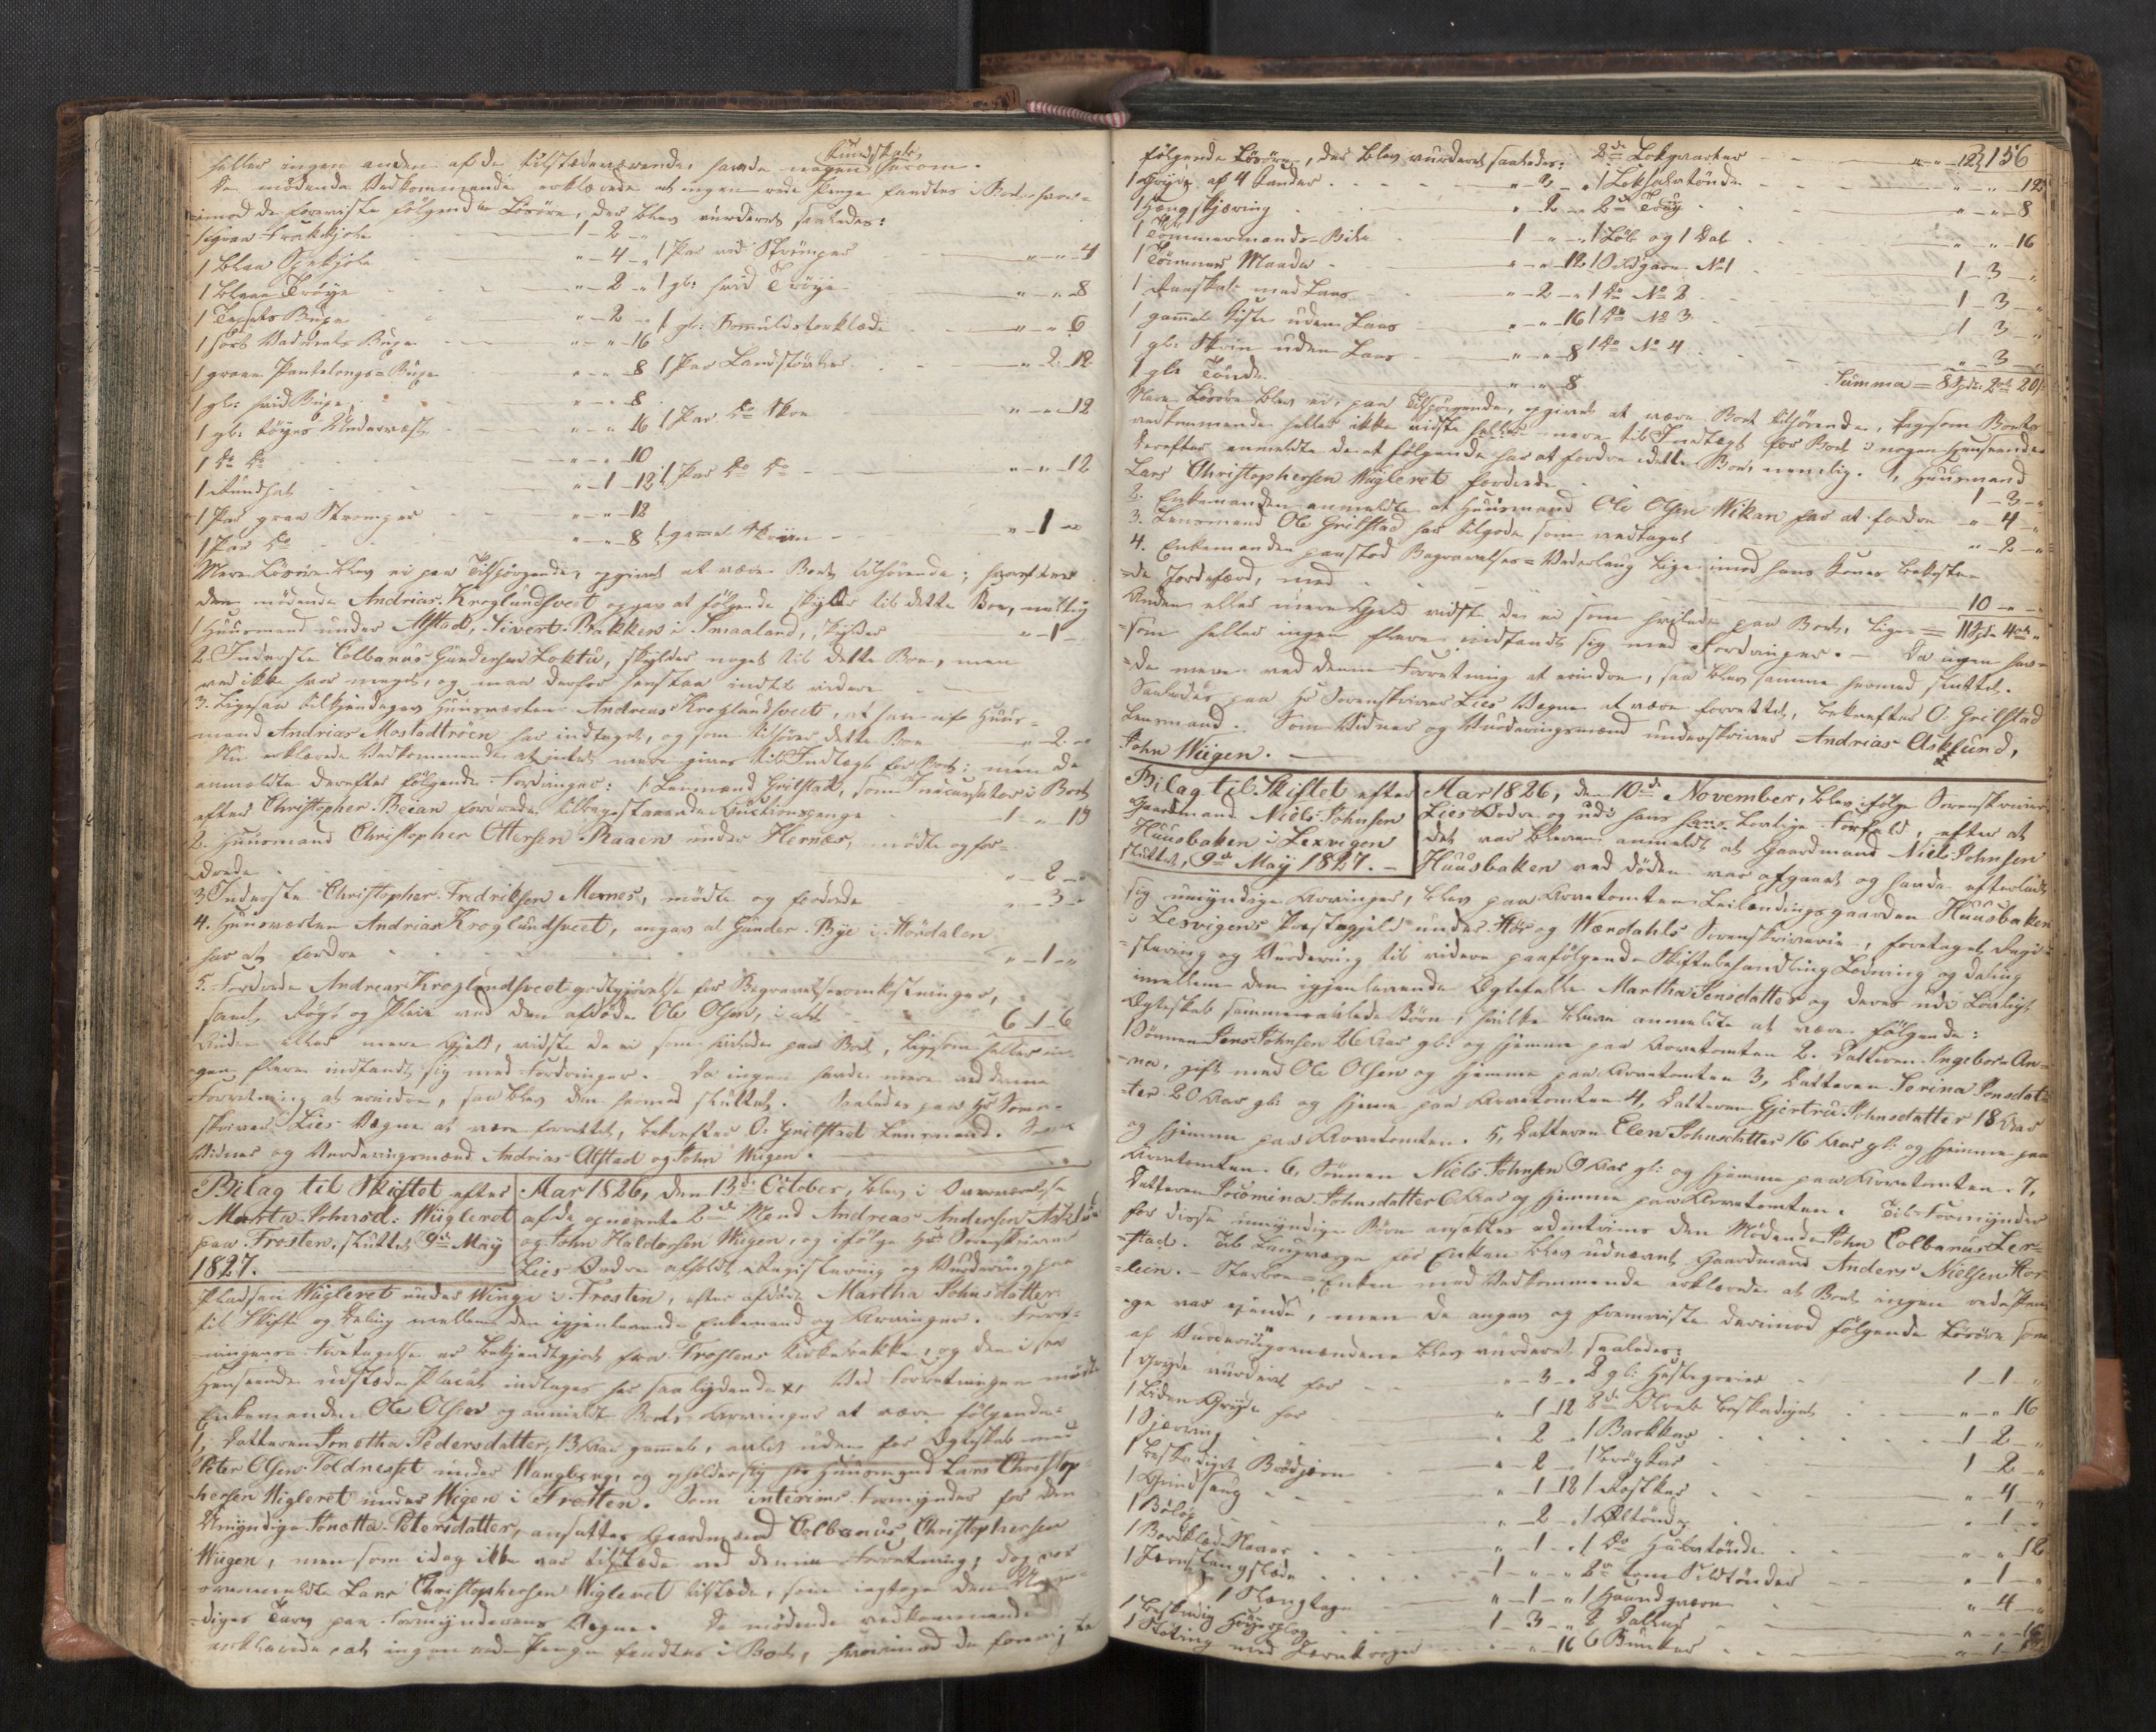 heller ingen anden af de tilstædeværende, havde nogen Kundskab herom.
De mødende Vedkommende erklærede at ingen rede Penge fandtes i Boet, hvor-
imod de foreviste følgende Løsøre, der blev vurderet saaledes:
1 graa Frakkjole 1 - 2 - "
1 blaa Spekjole " - 4 - " 1 Par ved Strømper " - " - 4
1 blaae Trøye " - 2 - " 1 gl: hvid Trøye " - " - 8
1 Buxe " - 2 - " 1 gl: Bomuldstørklæde " - " - 6
1 sort Vadmels Buxe " - " - 16
1 graae Pantalongs-Buxe " - " - 8 1 Par " - 2 - 12
1 gl: hvid Buxe " - " - 8
1 gl: tøyes Underveste " - " - 16 1 Par do Skoe " - " - 12
1 do do " - " - 10
1 Rundhat " - 1 - 12 1 Par do do " - " - 12
1 Par graa Strømper " - " - 12
1 Par do " - " - 8 1 gamel Skriin " - 1 - "
Mere Løsøre blev ei paa Tilspørgende, opgivet at være Boet tilhørende; hvorefter
den mødende Andrias Kroglundsveet opgav at følgende skylder til dette Boe, nemlig
1 Huusmand under Alstad, Sivert Bakken i Smaaland, skylder " - 1 - "
2. Inderste Colbanus Gundersen Loktu, skylder noget til dette Boe, men
ved ikke hvor meget, og maa derfor henstaae indtil videre
3. Ligesaa tilkjendegav Huusverten Andreas Kroglundsveet, at han af Huus-
mand Andrias Mostadtrøen har indtaget, og som tilhører dette Boe " - 2 - "
Nu erklærede Vedkommende at intet mere gives til Indtægt for Boet; men de
anmeldte derefter følgende Fordringer: 1. Lensmand Grilstad, som Incassator i Boet
efter Christopher Beian fordrede tilbagestaaende Auctionspenge 1 - " - 19
2. Huusmand Christopher Ottersen Raaen under Hernes, mødte og for-
drede " - 2 - "
3 Inderste Christopher Fredriksen Mernes, mødte og fordrede " - 3 - "
4. Huusverten Andrias Kroglundsveet, angav at Gunder Bye i Mørdalen
har at fordre " - 1 - "
5. Fordrede Andreas Kroglundsveet godtgjørelse for Begravelsesomkostninger,
samt Røgt og Pleie ved den afdøde Ole Olsen, i alt 6 - 1 - 6
Anden eller mere Gjeld, vidste de ei som hvilede paa Boet, ligesom heller in-
gen flere indfandt sig med Fordringer. Da ingen havde mere ved denne
Forretning at erindre, saa blev den hermed sluttet. Saaledes paa Hr Soren-
skriver Lies Vegne at være forrettet, bekræfter O: Grilstad Lensmand. Som
Vidner og Vurderingsmænd Andrias Alstad og John Wiigen.
Bilag til Skiftet efter
Marta Johnsd: Wiigleret
paa Frosten, sluttet 9de May
1827.
Aar 1826, den 13de October, blev i Overværelse
af de opnævnte 2de Mænd Andreas Andersen Asklund
og John Haldorsen Wiigen, og ifølge Hr Sorenskriver
Lies Ordre afholdt Registering og Vurdering paa
Pladsen Wiigleret under Winge i Frosten, efter afdøde Martha Johnsdatter
til Skifte og Deling mellem den igjenlevende Enkemand og Arvinger. Forret-
ningens Foretagelse er bekjendtgjort fra Frostens Kirkebakke, og den i saa
Henseende udstædte Placat indtages her saalydende x. Ved Forretningen mødte
Enkemanden Ole Olsen og anmeldte Boets Arvinger at være følgende:
1, Datteren Jonetha Pedersdatter, 13 Aar gammel, avlet uden for Ægteskab med
Peter Olsen Foldnesset under Wangberg, og opholder sig hos Huusmand Lars Christop-
hersen Wigleret under Wigen i Frosten. Som interims Formynder for den
Umyndige Jonetta Petersdatter, ansættes Gaardmand Colbanus Christophersen
Wiigen, men som idag ikke var tilstæde ved denne Forretning; dog var
ovenmeldte Lars Christophersen Wigleret tilstæde, som iagtoge den Umyn-
diges Tarv paa Formynderens Vegne. De mødende vedkommende
erklærede, at ingen rede Penge fandtes i Boet, hvorimod de foreviste
156
følgende Løsøre, der blev vurderet saaledes: 2de " - " - 12
1 Gryde af 4 Tander " - 2 - " 1 " - " - 12
1 Hengskjæring " - 2 - " 2de Trug " - " - 8
1 Tømmermands-Bile 1 - " - " 1 Løb og 1 Dal " - " - 16
1 Tømmer Maade " - " - 12 1 Sildgarn No 1 1 - 3 - "
1 med Laas " - 2 - " 1 do No 2 1 - 3 - "
1 gammel Kiste uden Laas " - " - 16 1 do No 3 1 - 3 - "
1 gl: Skrin uden Laas " - " - 8 1 do No 4 " - 3 - "
1 gl: Tønde " - " - 8 Summa = 8 Spd: 2ort 20 s
Mere Løsøre blev ei, paa Tilspørgende, opgivet at være Boet tilhørende, ligesom Boets
vedkommende heller ikke vidste heller mere til Indtægt for Boet i nogen henseende.
Derefter anmeldte de at følgende har at fordre i dette Boe, nemlig. 1, Huusmand
Lars Christophersen Wigleret fordrede 1 - 3 - "
2. Enkemanden anmeldte at Huusmand Ole Olsen Wikan har at fordre " - 4 - "
3. Lensmand Ole Grilstad har tilgode som vedtaget " - 2 - "
4. Enkemanden paastod Begravelses-Vederlaug lige imod hans Kones bekoste-
de Jordefærd, med 10 - " - "
Anden eller mere Gjeld vidste de ei som hvilede paa Boet, lige- = 11 Spd: 4ort "
som heller ingen flere indfandt sig med Fordringer. Da ingen hav-
de mere ved denne Forretning at erindre, saa blev samme hermed sluttet.
Saaledes paa Hr Sorenskriver Lies Vegne at være forrettet, bekræfter O: Grilstad
Lensmand. Som Vidner og Vurderingsmænd underskriver Andrias Asklund,
John Wiigen.
Bilag til Skiftet efter
Gaardmand Niels Johnsen
Huusbaken i Lexvigen
sluttet, 9de May 1827.
Aar 1826, den 10de November, blev ifølge Sorenskriver
Lies Ordre og udi hans hans Lovlige Forfald, efter at
det var bleven anmeldt at Gaardmand Niels Johnsen
Huusbaken ved døden var afgaaet og havde efterladt
sig umyndige Arvinger, blev paa Arvetomten Leilændingsgaarden Huusbaken
i Lexvigens Præstegjeld under Stør og Wærdahls Sorenskriverie, foretaget Regi-
stering og Vurdering til videre paafølgende Skiftebehandling Lodning og Deling
imellem den igjenlevende Ægtefælle Martha Jensdatter og deres udi Lovligt
Ægteskab sammenavlede Børn, hvilke bleve anmeldte at være følgende:
1 Sønnen Jens Johnsen 26 Aar gl: og hjemme paa Arvetomten 2. Datteren Ingebor An-
na, gift med Ole Olsen og hjemme paa Arvetomten 3, Datteren Serina Jonsdat-
ter 20 Aar gl: og hjeme paa Arvetomten 4, Datteren Gjertru Johnsdatter 18 Aar
og hjemme paa Arvetomten. 5, Datteren Elen Johnsdtter 16 Aar gl: og hjemme paa
Arvetomten. 6, Sønnen Niels Johnsen 9 Aar gl: og hjemme paa Arvetomten. 7,
Datteren Jocomina Johnsdatter 6 Aar og hjemme paa Arvetomten. Til Formynder
for disse umyndige Børn ansattes adintrims den Mødende John Colbanus Ler-
stad. Til Laugværge for Enken blev udnævnt Gaardmand Anders Nielsen Hor-
lein. Sterboe-Enken med Vedkommende erklærede at Boet ingen rede Pen-
ge var ejende, men de angav og fremviste derimod følgende Løsøre som
af Vurderingsmændene blev vurderet saaledes:
1 Gryde vurderet for " - 3 - " 2 gl: Hestegreier 1 - 1 - "
1 Liden Gryde for " - 1 - 12 2de beskadiget " - " - 16
1 Skjæring " - 2 - " 1 Barkkar 1 - 2 - "
1 beskadiget Brødjern " - 2 - " 1 Brøgkar 1 - 2 - "
1 Grindsaug " - 1 - 12 1 Rostkar " - 4 - "
1 Bøløx " - 2 - " 1 Øltønde " - 1 - "
1 Naver " - 1 - " 1 do Halvtønde " - " - 12
1 Jernstangslæde 1 - " - " 2de tom Sildtønder " - 1 - "
1 Slængtage " - 1 - " 1 Haandqværn " - 4 - "
1 beskadig Hougplog 1 - 3 - " 2 Daller " - " - 16
1 Støting med Jernkroger " - " - 16 6 Bunker " - 1 -